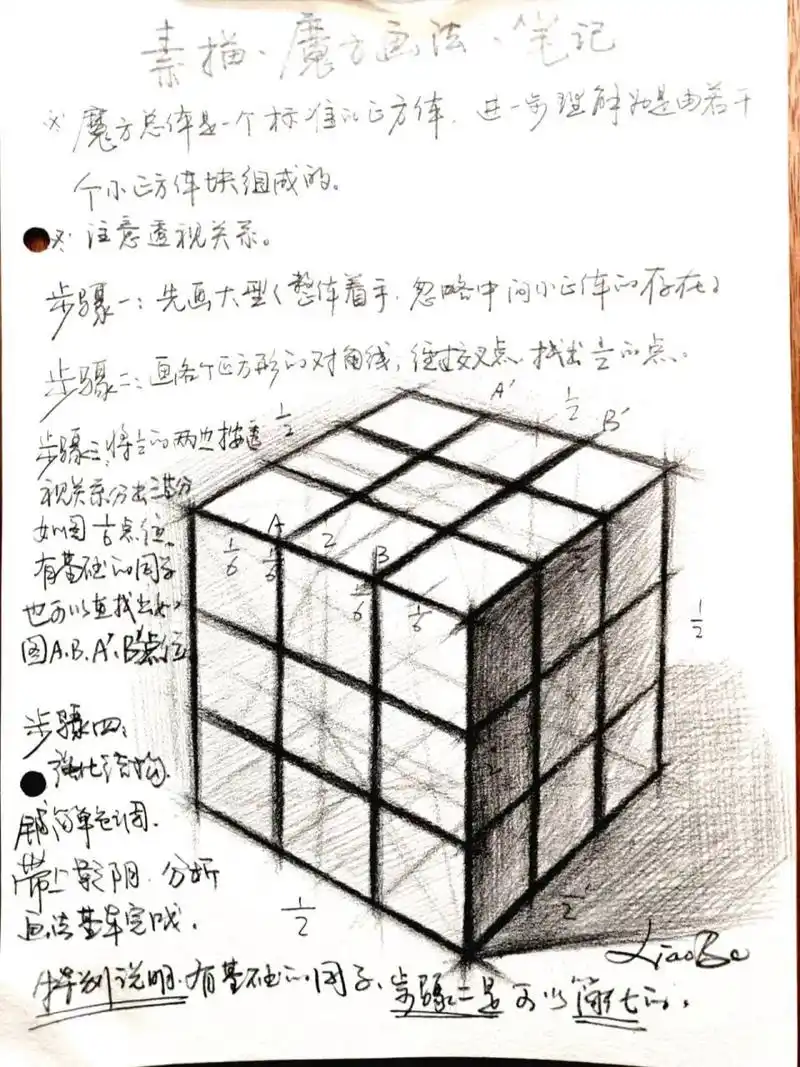 素描、魔方画法、笔记
※ 魔方总体是一个标准的正方体，进一步理解为是由若干
个小正方体块组成的。
※ 注意透视关系。
步骤一：先画大型（整体着手，忽略中间小正体的存在）
步骤二：画各个正方形的对角线，经过交叉点，找出1/2的点。
步骤三：将1/2的两边按透
视关系分出三等分
如图1/6点位。
有基础的同学
也可以直接找出如
图A、B、A'、B'点位
步骤四：
强化结构，
铺简单色调。
带上影阴，分析
画法基本完成。
A'
1/2
B'
1/2
A
B
1/6
1/6
1/2
1/6
1/6
1/2
1/2
1/2
1/2
LiaoBo
特别说明：有基础的同学，步骤二是可以简化的。